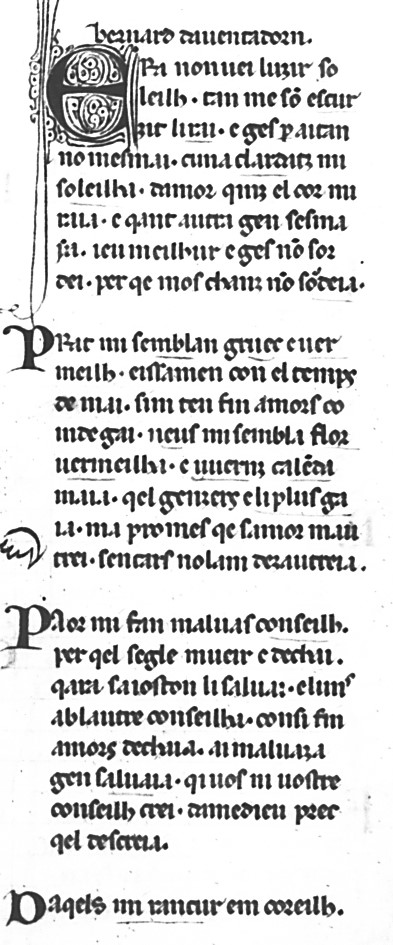 bernard dauentadorn.
ERa non uei luzir so
leilh · tan me sō escur
zit li rai · e ges ꝑ aitan
no mesmai · cuna clardatz mi
soleilha · damor quinz el cor mi
raia · e qant autra gen sesma
ia · ieu meilhur e ges nō sor
dei · per qe mos chanz nō sordeia ·
PRat mi semblan gruec e uer
meilh · eissamen con el temps
de mai · sim ten fin amors co
inde gai · neus mi sembla flor
uermeilha · e uuernz calēda
maia · qel genzers e li plus ga
ia · ma promes qe samor mau
trei · sencars nolam dezautreia .
PAor mi fan maluas conseilh .
per qel segle mueir e dechai .
qara saioston li saluai · e lunˢ
ab lautre conseilha · consi fin
amors dechaia . ai maluaza
gen saluaia · qi uos ni uostre
conseilh crei · damedieu prec
qel descreia .
Daqels mi rancur em coreilh .